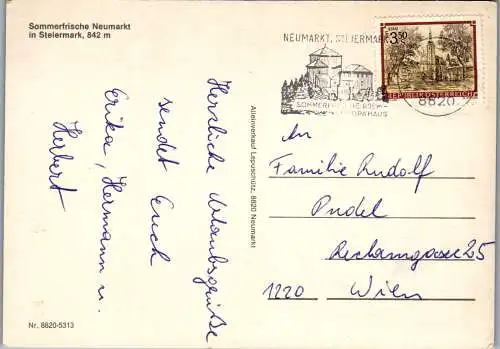 Sommerfrische Neumarkt
in Steiermark, 842 m
Herzliche Urlaubsgrüße
sendet Euch
Erika, Hermann u.
Herbert
Nr. 8820-5313
Alleinverkauf Leposchütz, 8820 Neumarkt
NEUMARKT, STEIERMARK
SOMMERFRISCHE
OPAHAUS
8820
3.50
REPUBLIK ÖSTERREICH
An
Familie Rudolf
Pudel
Reclamgasse 25
1220 Wien